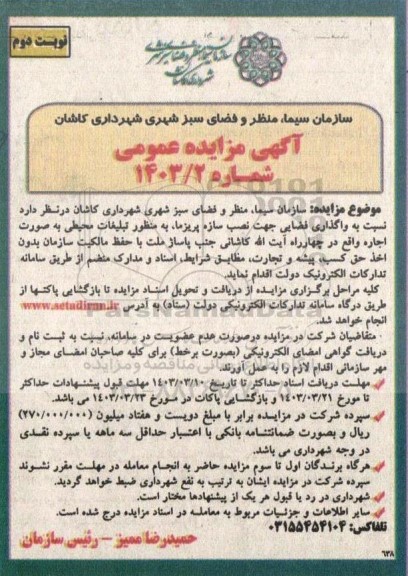 نوبت دوم
سازمان سیما، منظر و فضای سبز شهری شهرداری کاشان
آگهی مزایده عمومی
شماره ۱۴۰۳/۲
موضوع مزایده: سازمان سیما، منظر و فضای سبز شهری شهرداری کاشان درنظر دارد
نسبت به واگذاری فضایی جهت نصب سازه پریزما، به منظور تبلیغات محیطی به صورت
اجاره واقع در چهارراه آیت الله کاشانی جنب پاساژ ملت با حفظ مالکیت سازمان بدون
اخذ حق کسب، پیشه و تجارت، مطابق شرایط، اسناد و مدارک منضم از طریق سامانه
تدارکات الکترونیک دولت اقدام نماید.
کلیه مراحل برگزاری مزایده از دریافت و تحویل اسناد مزایده تا بازگشایی پاکتها از
طریق درگاه سامانه تدارکات الکترونیکی دولت (ستاد) به آدرس www.setadiran.ir
انجام خواهد شد.
متقاضیان شرکت در مزایده درصورت عدم عضویت در سامانه، نسبت به ثبت نام و
دریافت گواهی امضای الکترونیکی (بصورت برخط) برای کلیه صاحبان امضای مجاز و
مهر سازمانی اقدام لازم را به عمل آورند.
مهلت دریافت اسناد حداکثر تا تاریخ ۱۴۰۳/۰۳/۱۰ مهلت قبول پیشنهادات حداکثر
تا مورخ ۱۴۰۳/۰۳/۲۱ و بازگشایی پاکات در مورخ ۱۴۰۳/۰۳/۲۳ می باشد.
سپرده شرکت در مزایده برابر با مبلغ دویست و هفتاد میلیون (۲۷۰/۰۰۰/۰۰۰)
ریال و بصورت ضمانتنامه بانکی با اعتبار حداقل سه ماهه یا سپرده نقدی
در وجه شهرداری می باشد.
هرگاه برندگان اول تا سوم مزایده حاضر به انجام معامله در مهلت مقرر نشوند
سپرده شرکت در مزایده ایشان به ترتیب به نفع شهرداری ضبط خواهد گردید.
شهرداری در رد یا قبول هر یک از پیشنهادها مختار است.
سایر اطلاعات و جزئیات مربوط به معامله در اسناد مزایده درج شده است.
تلفاکس: ۰۳۱۵۵۴۵۴۱۰۴
حمیدرضا ممیز – رئیس سازمان
۶۳۸